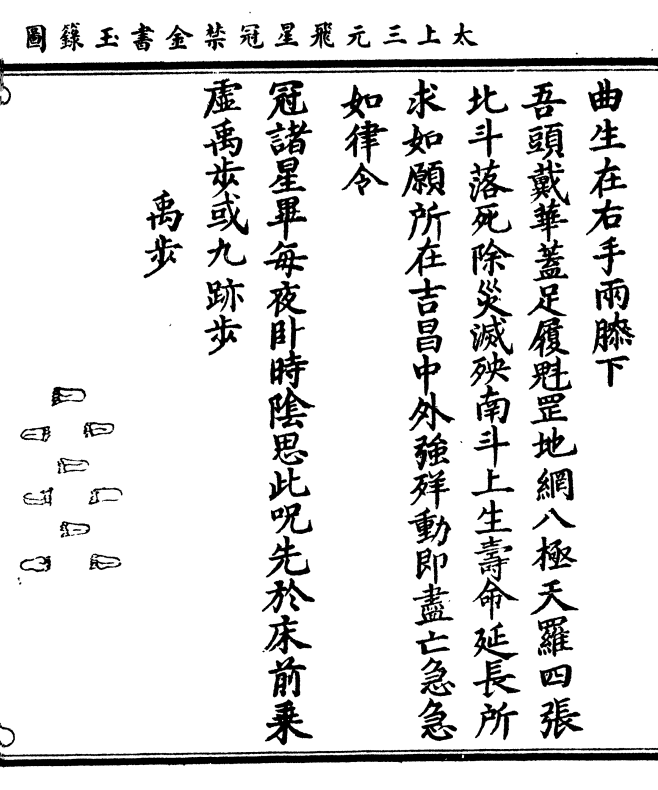 太上三元飛星冠禁金書玉籙圖
曲生在右手兩膝下
吾頭戴華蓋足履魁罡地網八極天羅四張
北斗落死除災滅殃南斗上生壽命延長所
求如願所在吉昌中外強殍動即盡亡急急
如律令
冠諸星畢每夜臥時陰思此呪先於床前乗
虛禹步或九跡步
禹步